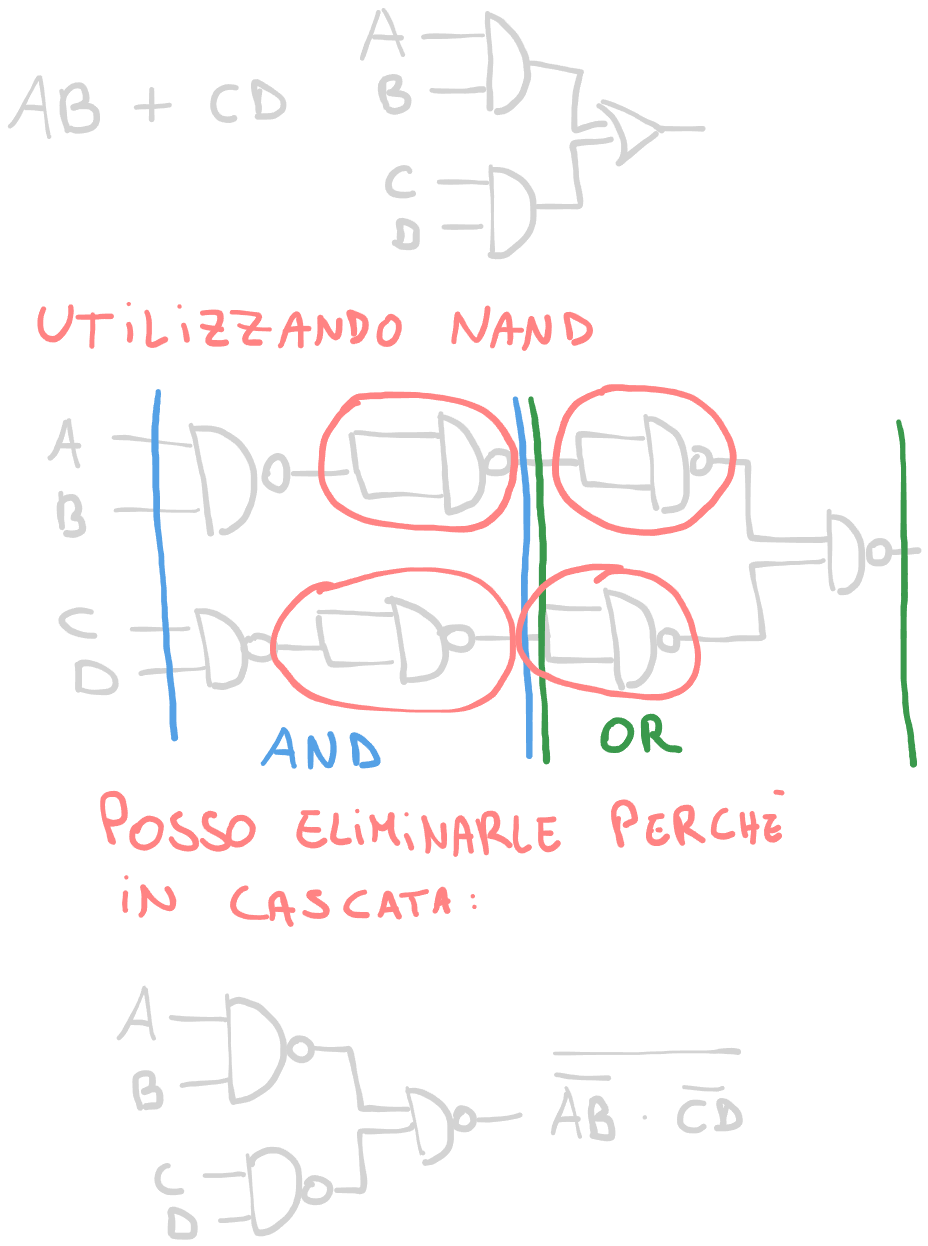 AB + CD
A
B
C
D
UTILIZZANDO NAND
A
B
C
D
AND
OR
POSSO ELIMINARLE PERCHÈ
IN CASCATA:
A
B
C
D
$\overline{\overline{AB} \cdot \overline{CD}}$